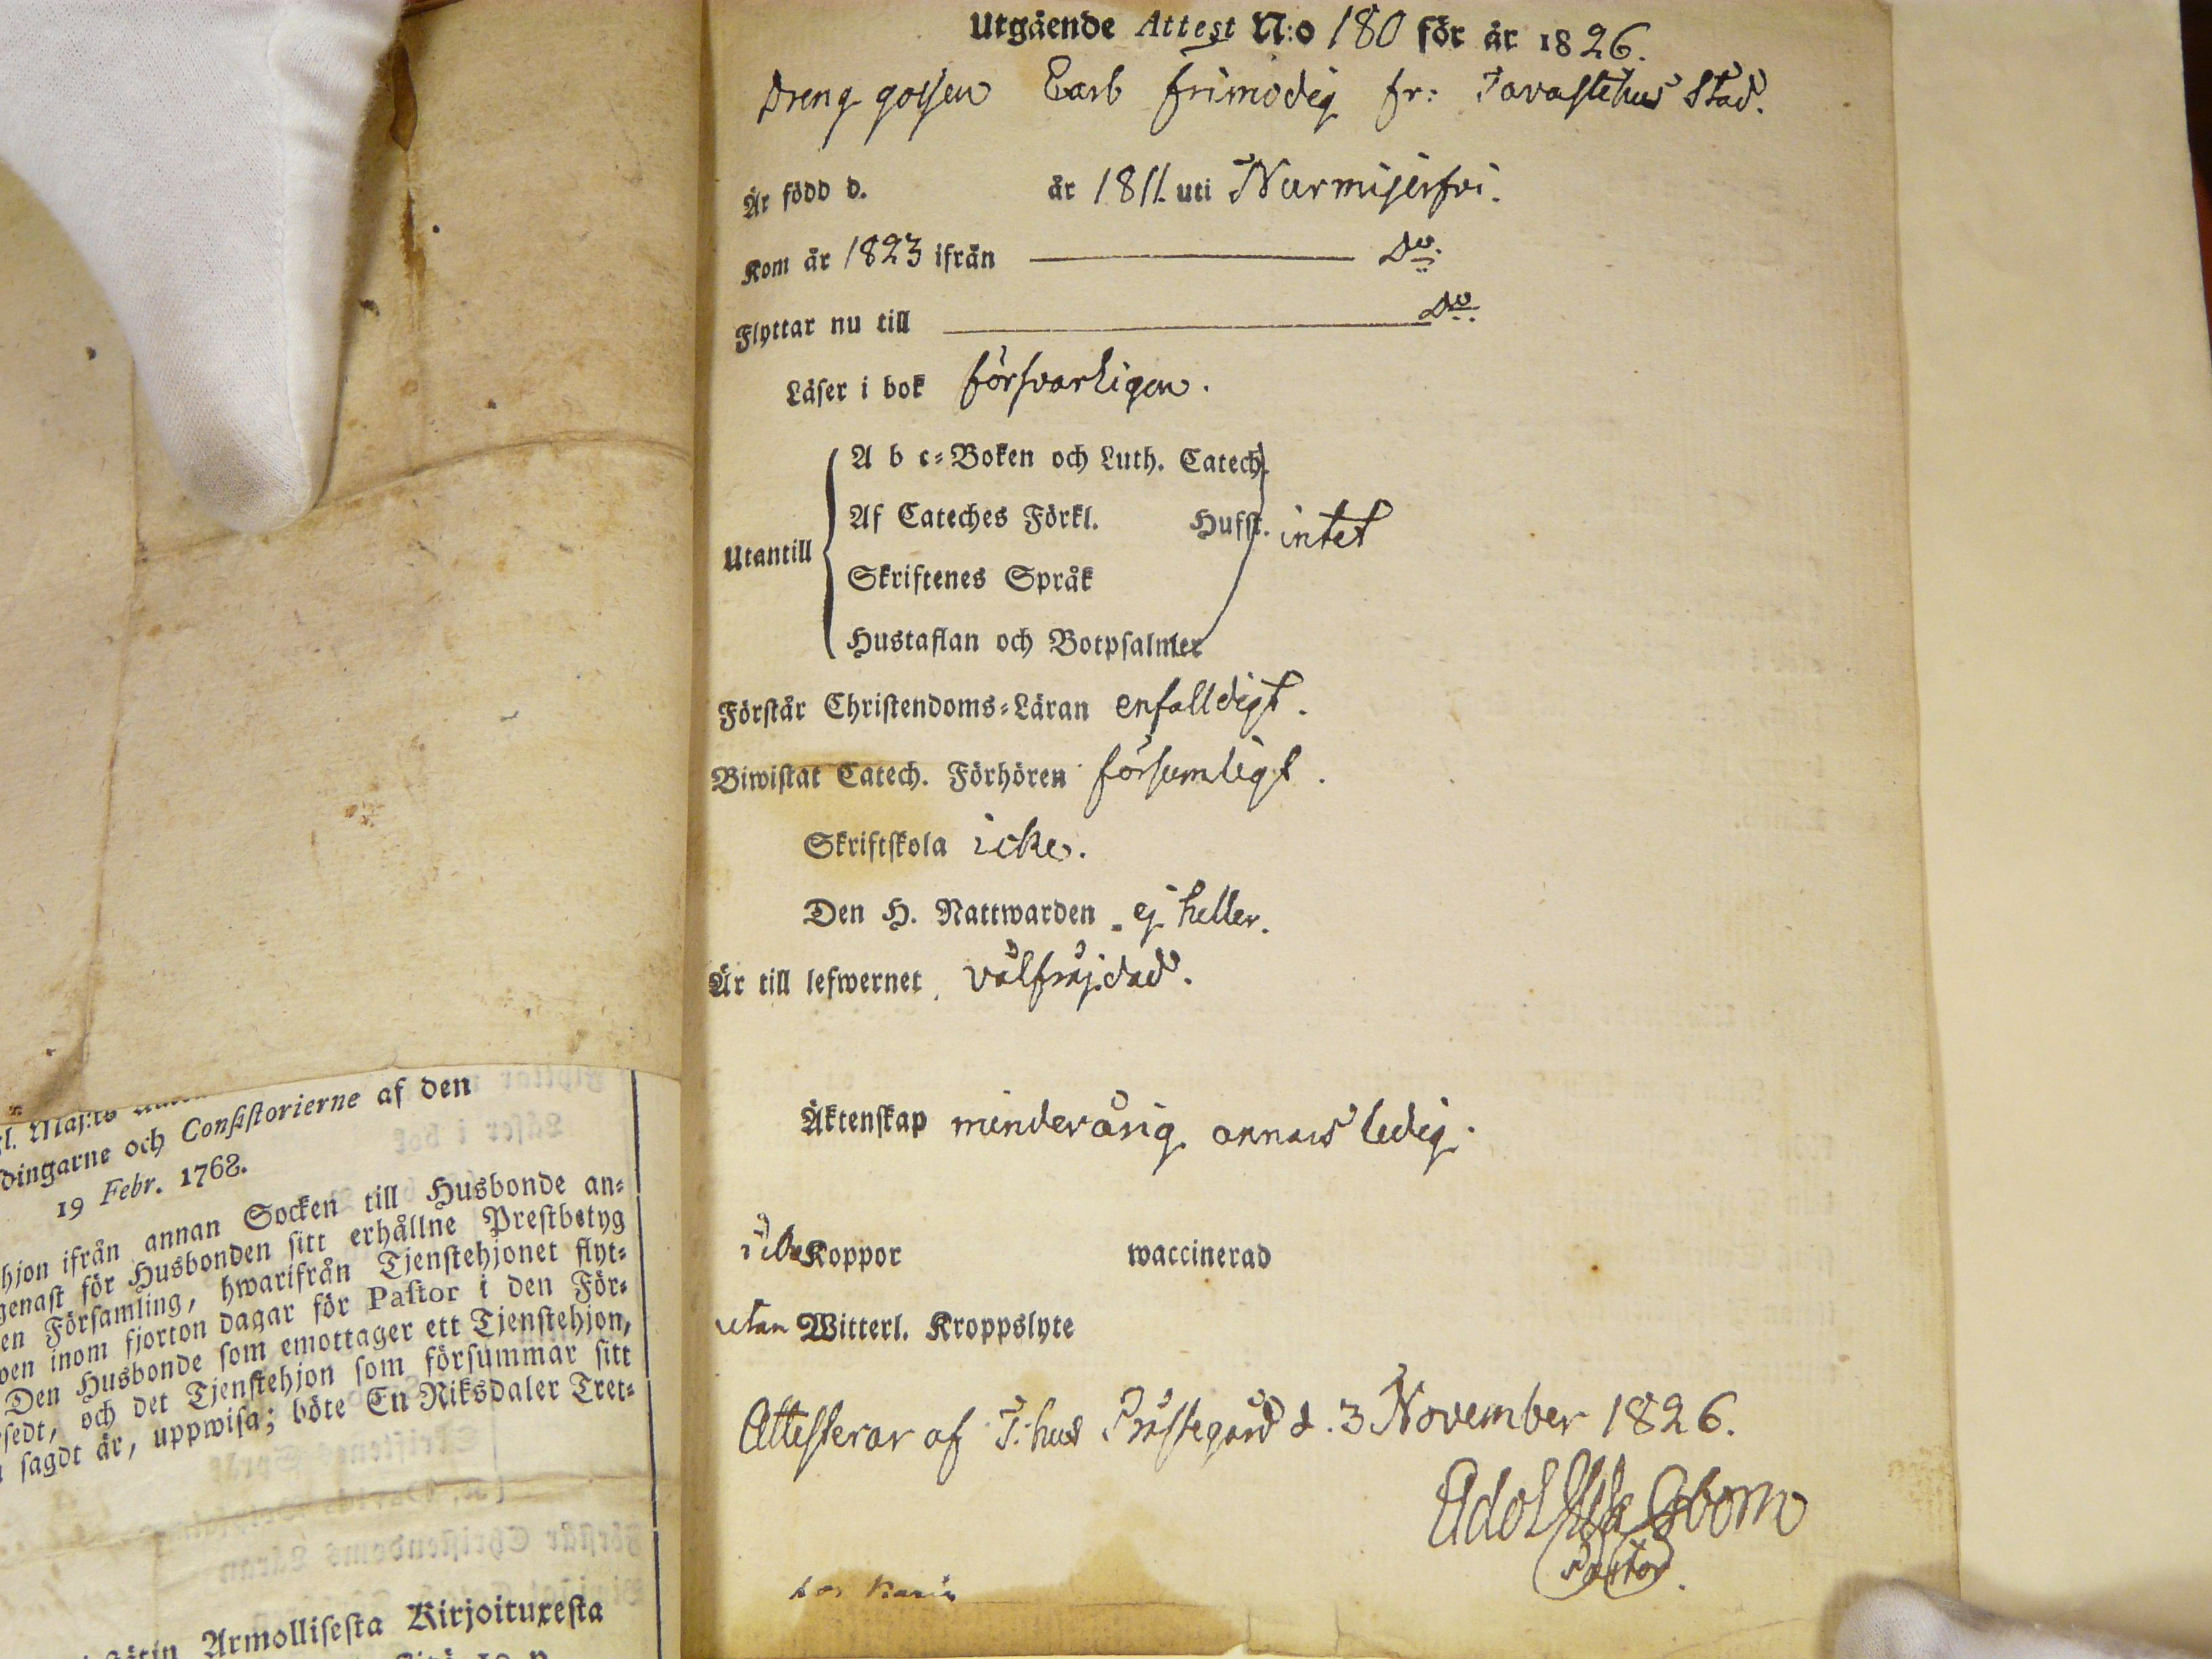 l. Maj:ts
dingarne och Consistorierne af den
19 Febr. 1768.
hjon ifrån annan Socken till Husbonde an-
genast för Husbonden sitt erhållne Prestbetyg
en Församling, hwarifrån Tjenstehjonet flyt-
wen inom fjorton dagar för Pastor i den För-
Den Husbonde som emottager ett Tjenstehjon,
sedt, och det Tjenstehjon som försummar sitt
sagdt är, uppwisa; böte En Riksdaler Tret-
Armollisesta Kirjoituxesta
Utgående Attest N:o 180 för år 1826.
Dreng gossen Carl frimodig fr: Tavastehus Stad.
Är född d. år 1811. uti Nurmijerfvi.
Kom år 1823 ifrån Do.
Flyttar nu till Do.
Läser i bok försvarligen.
A b c-Boken och Luth. Catech.
Af Cateches Förkl. Hufst. intet
Utantill
Skriftenes Språk
Hustaflan och Botpsalmer
Förstår Christendoms-Läran enfalldigt.
Biwistat Catech. Förhören försumligt.
Skriftskola icke.
Den H. Nattwarden ej heller.
Är till lefwernet välfräjdad.
Äktenskap minderårig annars ledig.
Koppor waccinerad
utan Witterl. Kroppslyte
Attesterar af T:hus Prästegård d. 3 November 1826.
Adolf
Pastor.